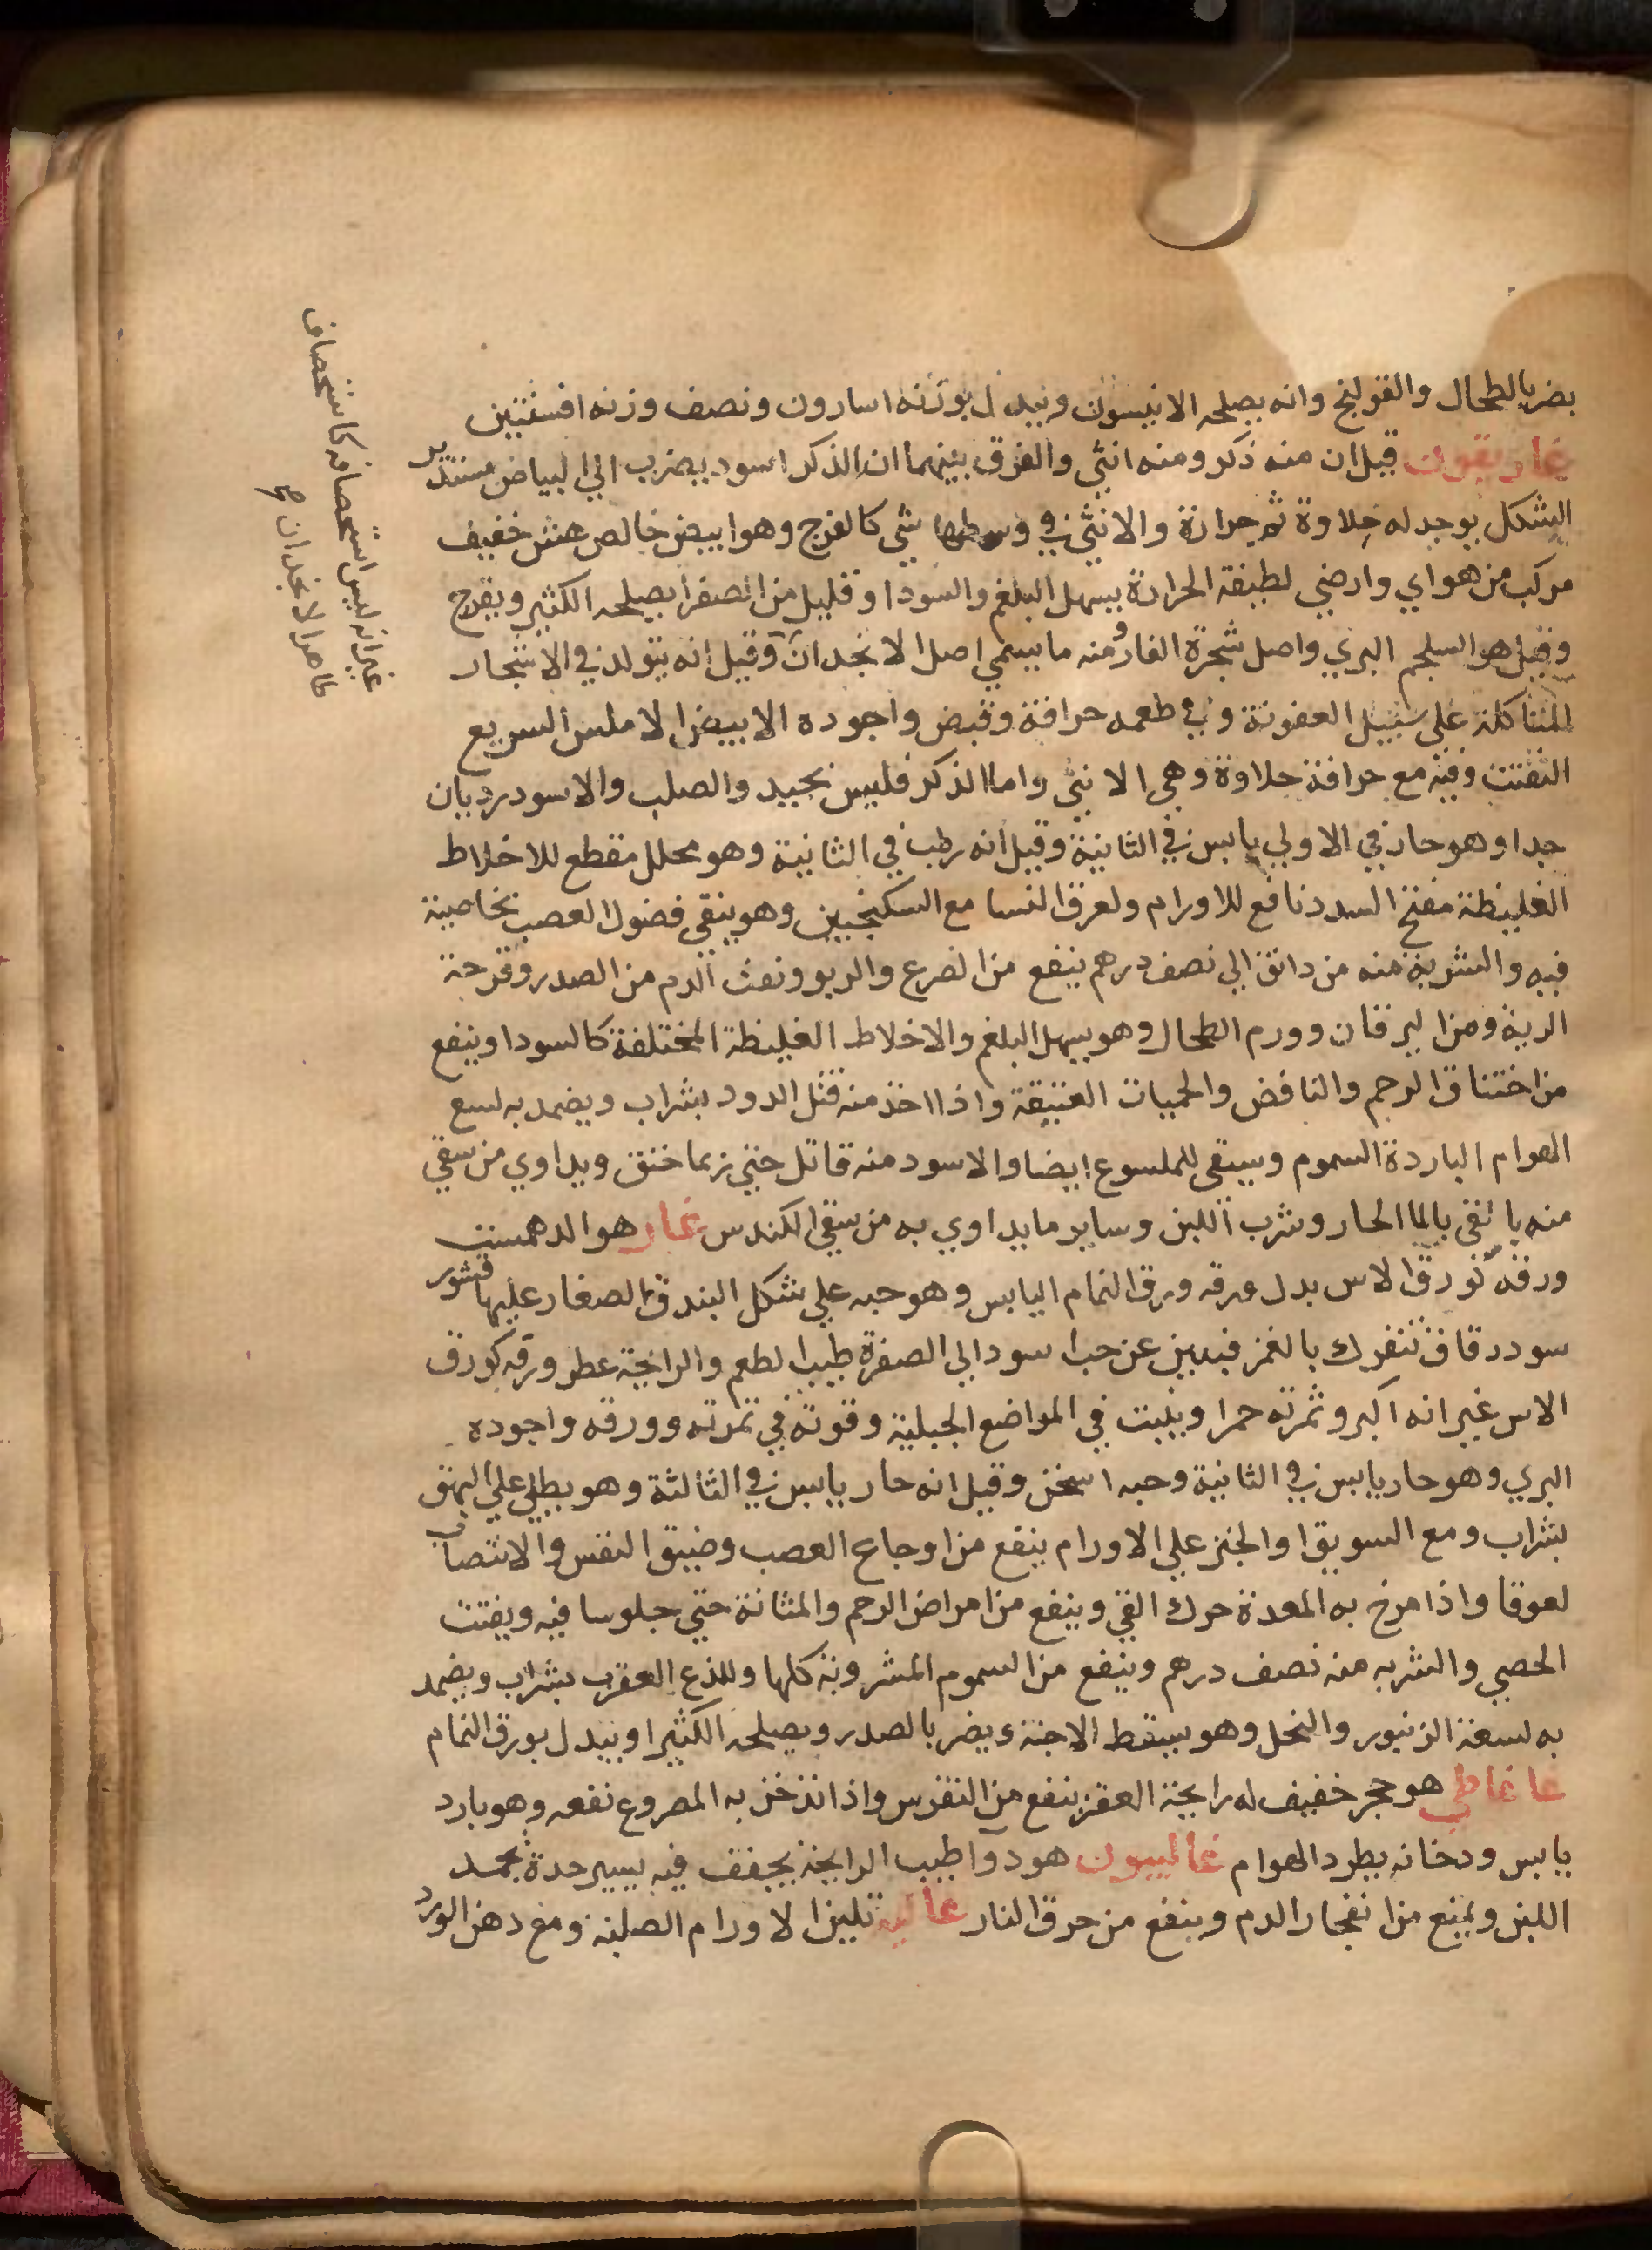 يضر بالطحال والقولنج وانه يصلحه الانيسون ويبدل بوزنه اسارون ونصف وزنه افسنتين
غاريقون قيل ان منه ذكر ومنه انثي والفرق بينهما ان الذكر اسود يضرب الي البياض مستدير
الشكل يوجد له حلاوة ثم حرارة والانثي في وسطها شي كالفرج وهو ابيض خالص هش خفيف
مركب من هواي وارضي لطيفة الحرارة يسهل البلغم والسودا وقليل من الصفرا يصلحه الكثير ويفرح
وقيل هو السلجم البري واصل شجرة الغار ومنه ما يسمي اصل الانجدان وقيل انه يتولد في الاشجار
المتاكلة علي سبيل العفونة وفي طعمه حرافة وقبض واجوده الابيض الاملس السريع
التفتت وفيه مع حرافة حلاوة وهي الانثي واما الذكر فليس بجيد والصلب والاسود رديان
جدا وهو حار في الاولي يابس في الثانية وقيل انه رطب في الثانية وهو محلل مقطع للاخلاط
الغليظة مفتح السدد نافع للاورام ولعرق النسا مع السكنجبين وهو ينقي فضول العصب بخاصية
فيه والشربة منه من دانق الي نصف درهم ينفع من الصرع والربو ونفث الدم من الصدر وقرحة
الرية ومن اليرقان وورم الطحال وهو يسهل البلغم والاخلاط الغليظة المختلفة كالسودا وينفع
من اختناق الرحم والنافض والحميات العتيقة واذا اخذ منه قتل الدود بشراب ويضمد به لسع
الهوام الباردة السموم ويسقي للملسوع ايضا والاسود منه قاتل حتي ربما خنق ويداوي من سقي
منه بالقي بالما الحار وشرب اللبن وساير ما يداوي به من سقي الكندس غار هو الدهمست
ورقه كورق الاس بدل ورقه ورق النمام اليابس وهو حبه علي شكل البندق الصغار عليها قشور
سود رقاق تنفرك بالغمز فيبين عن حب اسود الي الصفرة طيب الطعم والرايحة عطر ورقه كورق
الاس غير انه اكبر وثمرته حمرا وينبت في المواضع الجبلية وقوته في ثمرته وورقه واجوده
البري وهو حار يابس في الثانية وحبه اسخن وقيل انه حار يابس في الثالثة وهو يطلي علي البهق
بشراب ومع السويق او الخبز علي الاورام ينفع من اوجاع العصب وضيق النفس والانتصاب
لعوقا واذا مرخ به المعدة حرك القي وينفع من امراض الرحم والمثانة حتي جلوسا فيه ويفتت
الحصي والشربه منه نصف درهم وينفع من السموم المشروبة كلها وللذع العقرب بشراب ويضمد
به لسعة الزنبور والنحل وهو يسقط الاجنة ويضر بالصدر ويصلحه الكثيرا ويبدل بورق النمام
غاغاطي هو حجر خفيف له رايحة القفر ينفع من النقرس واذا تدخن به المصروع نفعه وهو بارد
يابس ودخانه يطرد الهوام غاليبون هو دوا طيب الرايحة يجفف فيه يسير حدة يجمد
اللبن ويمنع من انفجار الدم وينفع من حرق النار غالية تلين الاورام الصلبة ومع دهن الورد
غير انه ليس